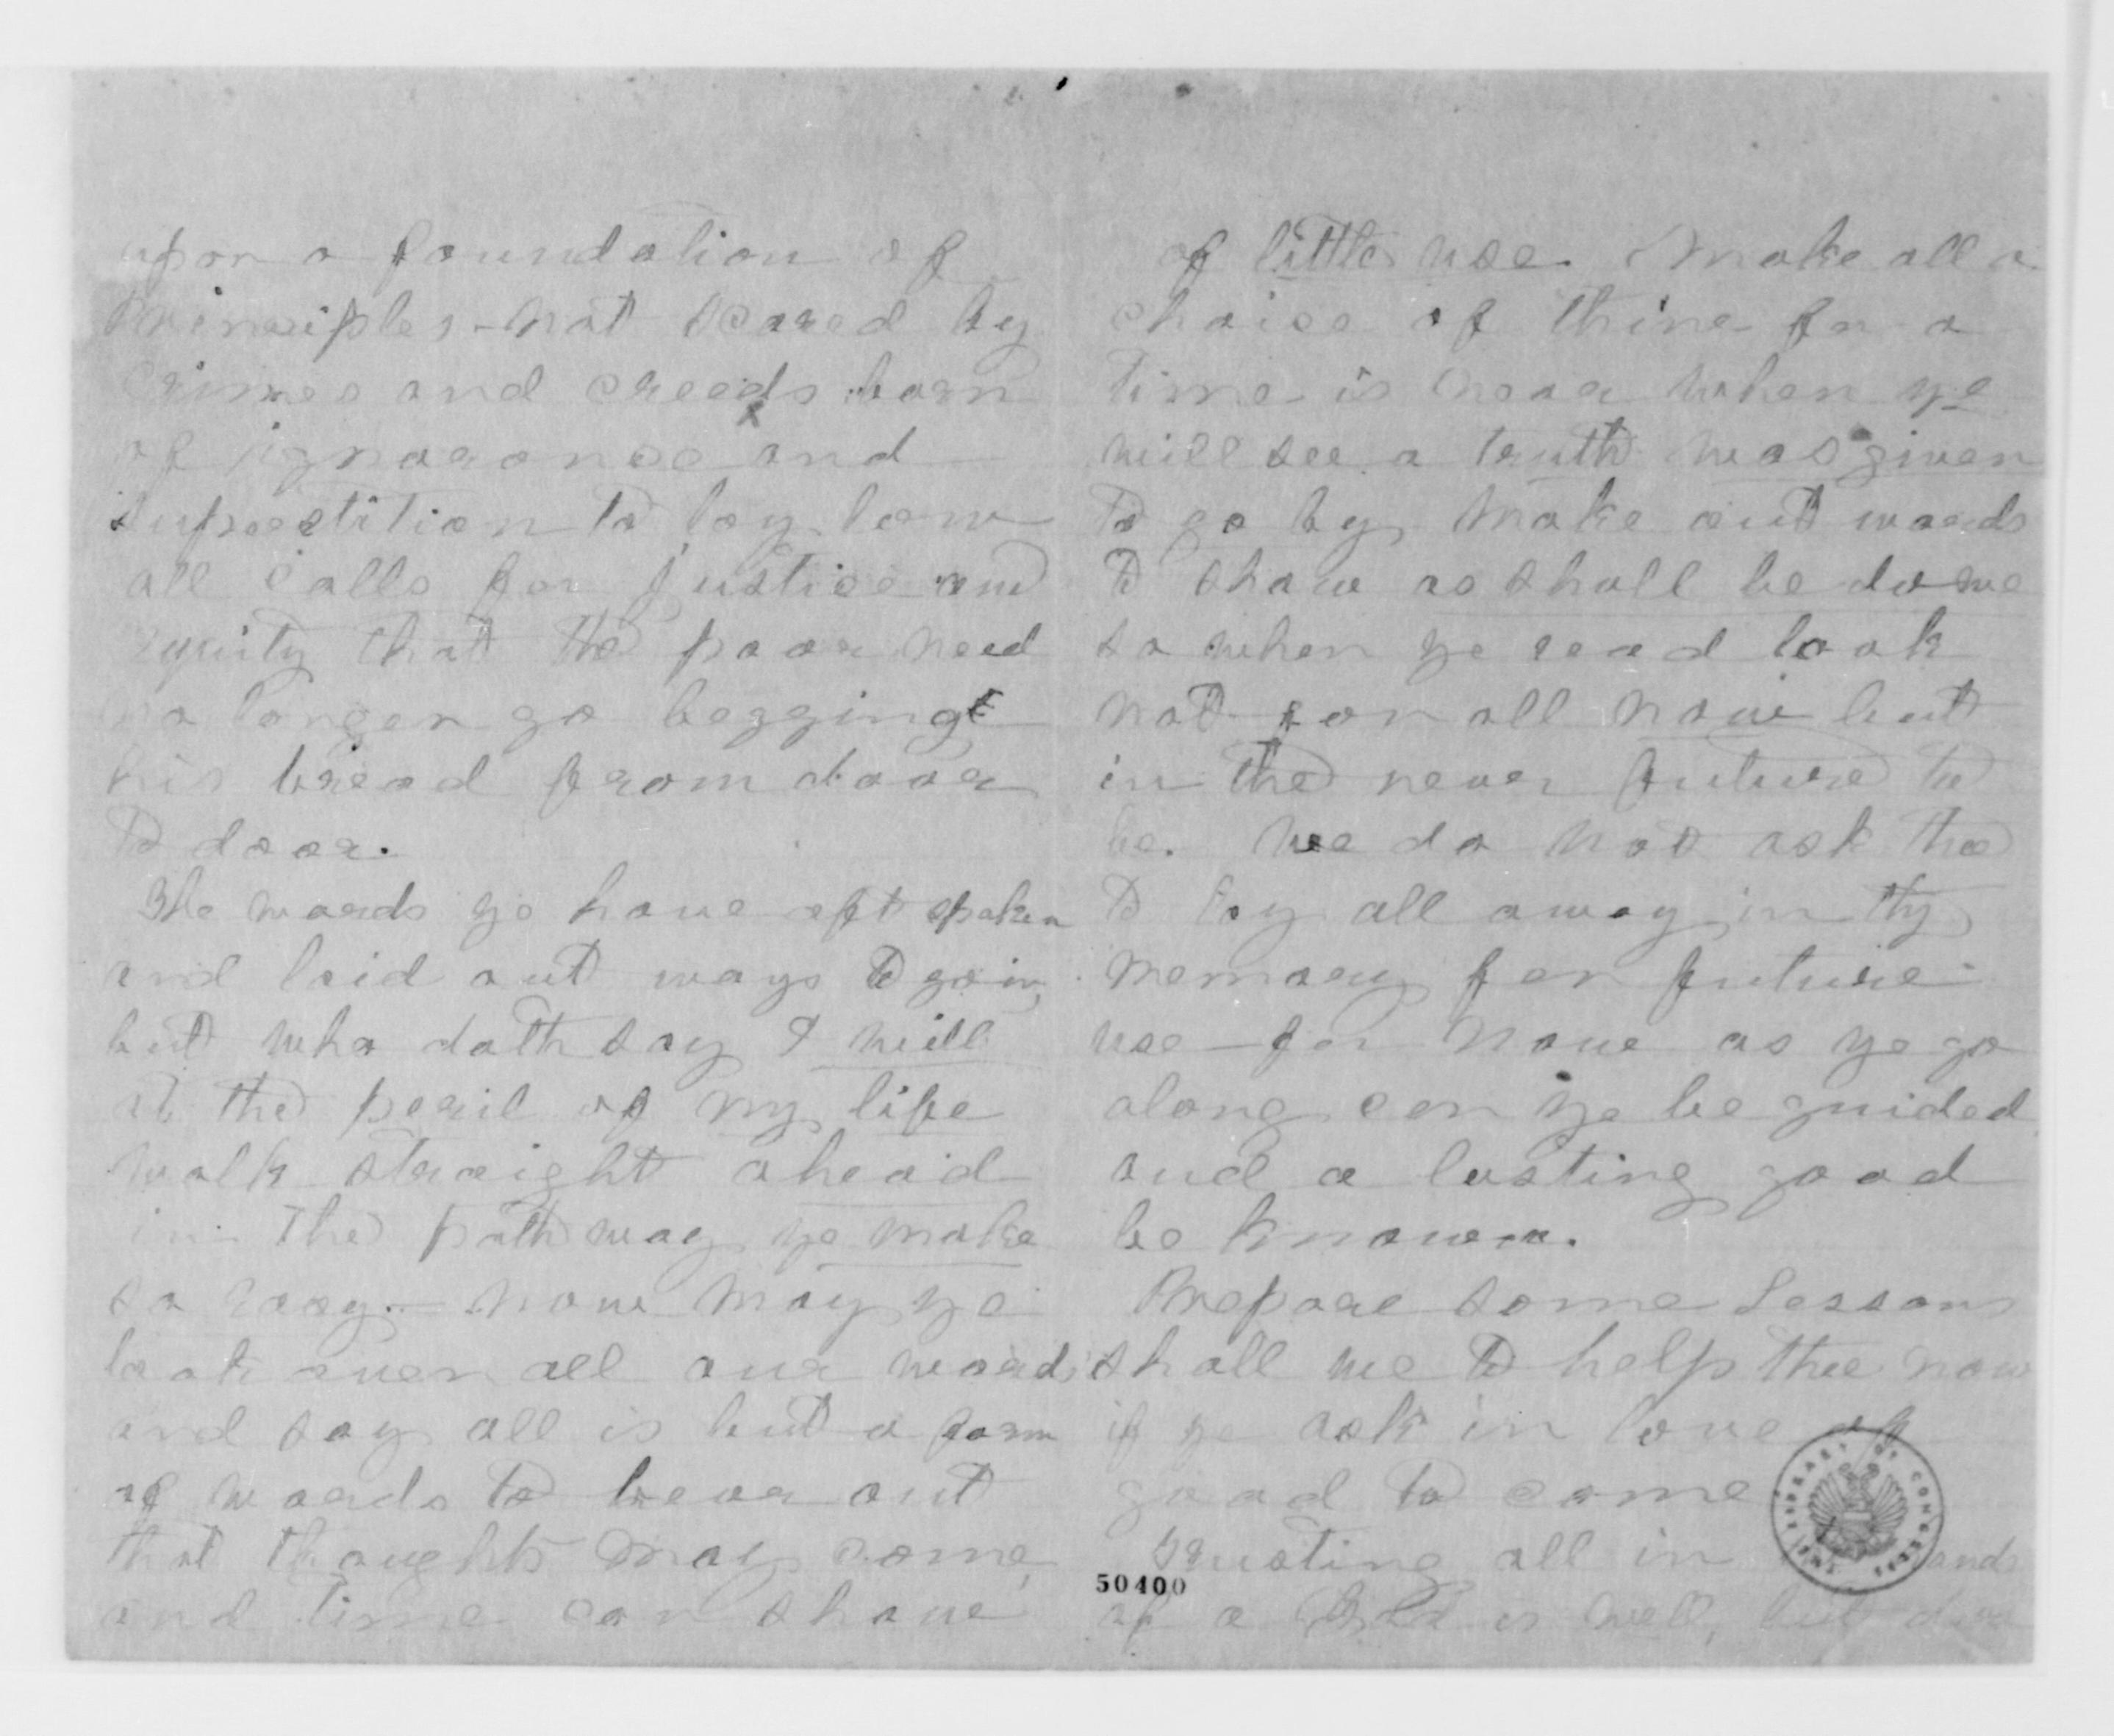 upon a foundation of
Principles - not scared by
Crimes and creeds born
of ignorance and
Superstition to lay low
all calls for justice and
equity that the poor need
no longer go begging
his bread from door
to door.
The words ye have oft spoken
and laid out ways to go in,
but who doth say I will
at the peril of my life
walk straight ahead
in the path way ye make
so easy. - now may ye
look over all our words
and say all is but a form
of words to wear out
that thoughts may come,
and time can show
of little use. make all a
choice of thine for a
time is near when ye
will see a truth was given
to go by, Make out words
to show as shall be done
so when ye read look
not for all now but
in the never future to
be. We do not ask thee
to lay all away in thy
memory for future
use - for now as ye go
along can ye be guided
and a lasting good
be known.
Prepare some Lessons
shall we to help thee now
if ye ask in love of
good to come
trusting all in
of a God is well, but
50400
LIBRARY OF CONGRESS